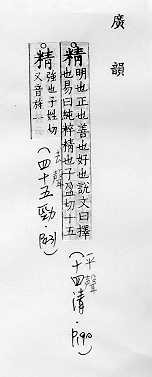 廣韻
精 明也正也善也好也說文曰擇
也易曰純粹精也子盈切十五
平聲
(十四清·P190)
精 強也子姓切
又音旌一
去聲
(四十五勁·P431)